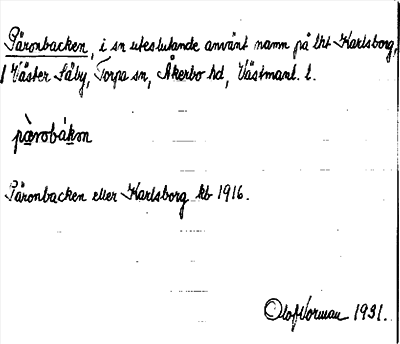 Päronbacken, i sn uteslutande använt namn på lht Karlsborg,
1 Väster Säby, Torpa sn, Åkerbo hd, Västmanl. l.
pæ̀ronbákən
Päronbacken eller Karlsborg kb 1916.
Olof Norman 1931.